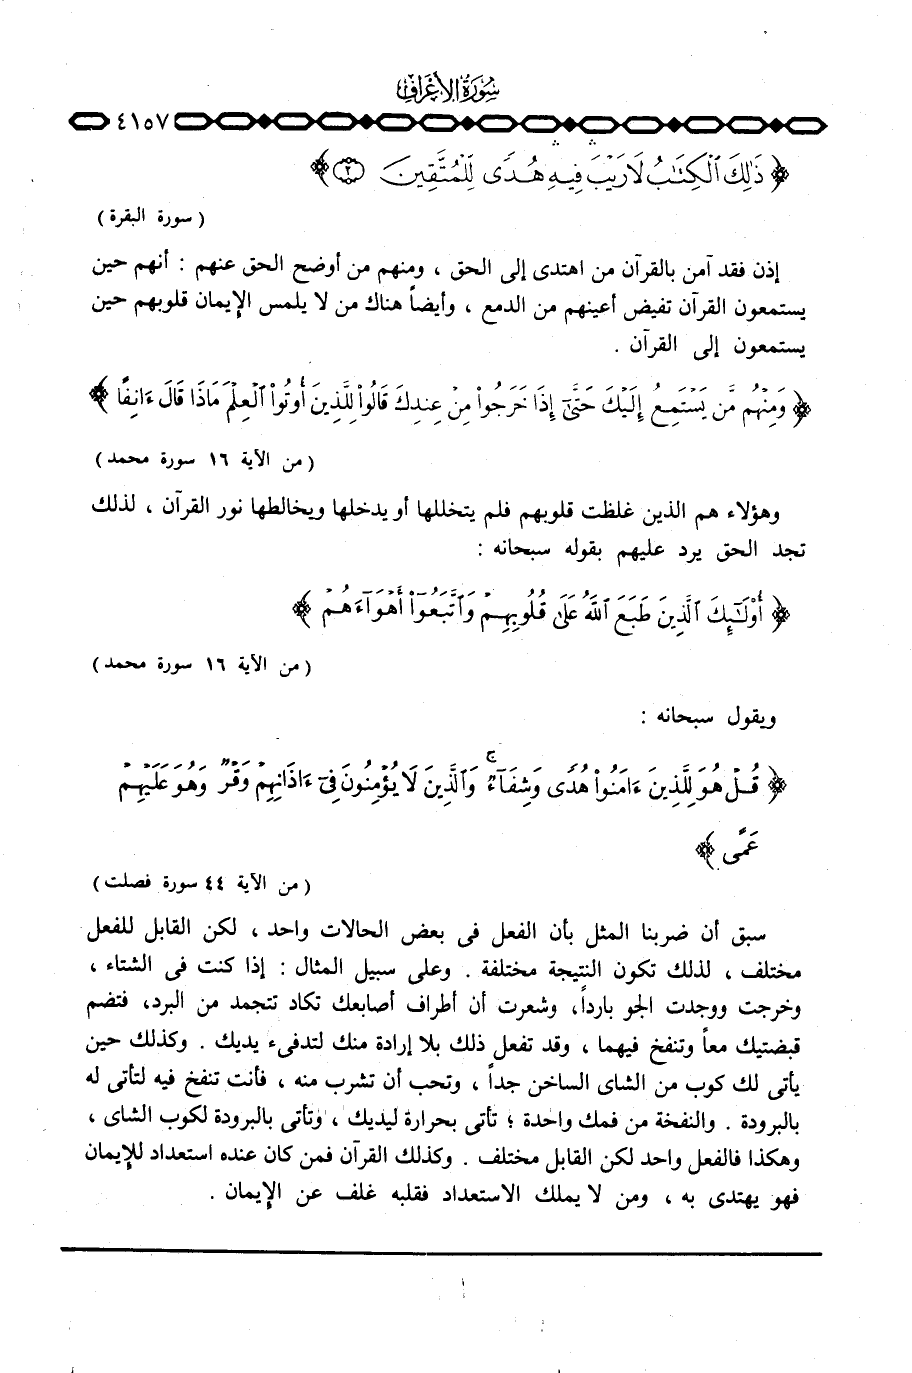 سُورَةُ الأَعْرَافِ
٤١٥٧
﴿ ذَٰلِكَ ٱلْكِتَٰبُ لَا رَيْبَ فِيهِ هُدًى لِّلْمُتَّقِينَ ٢ ﴾
( سورة البقرة )
إذن فقد آمن بالقرآن من اهتدى إلى الحق ، ومنهم من أوضح الحق عنهم : أنهم حين
يستمعون القرآن تفيض أعينهم من الدمع ، وأيضاً هناك من لا يلمس الإيمان قلوبهم حين
يستمعون إلى القرآن .
﴿ وَمِنْهُم مَّن يَسْتَمِعُ إِلَيْكَ حَتَّىٰٓ إِذَا خَرَجُواْ مِنْ عِندِكَ قَالُواْ لِلَّذِينَ أُوتُواْ ٱلْعِلْمَ مَاذَا قَالَ ءَانِفًا ﴾
( من الآية ١٦ سورة محمد )
وهؤلاء هم الذين غلظت قلوبهم فلم يتخللها أو يدخلها ويخالطها نور القرآن ، لذلك
تجد الحق يرد عليهم بقوله سبحانه :
﴿ أُوْلَٰٓئِكَ ٱلَّذِينَ طَبَعَ ٱللَّهُ عَلَىٰ قُلُوبِهِمْ وَٱتَّبَعُوٓاْ أَهْوَآءَهُمْ ﴾
( من الآية ١٦ سورة محمد )
ويقول سبحانه :
﴿ قُلْ هُوَ لِلَّذِينَ ءَامَنُواْ هُدًى وَشِفَآءٌ ۚ وَٱلَّذِينَ لَا يُؤْمِنُونَ فِىٓ ءَاذَانِهِمْ وَقْرٌ وَهُوَ عَلَيْهِمْ
عَمًى ﴾
( من الآية ٤٤ سورة فصلت )
سبق أن ضربنا المثل بأن الفعل فى بعض الحالات واحد ، لكن القابل للفعل
مختلف ، لذلك تكون النتيجة مختلفة . وعلى سبيل المثال : إذا كنت فى الشتاء ،
وخرجت ووجدت الجو بارداً، وشعرت أن أطراف أصابعك تكاد تتجمد من البرد، فتضم
قبضتيك معاً وتنفخ فيهما ، وقد تفعل ذلك بلا إرادة منك لتدفىء يديك . وكذلك حين
يأتى لك كوب من الشاى الساخن جداً ، وتحب أن تشرب منه ، فأنت تنفخ فيه لتأتى له
بالبرودة . والنفخة من فمك واحدة ؛ تأتى بحرارة ليديك ، وتأتى بالبرودة لكوب الشاى ،
وهكذا فالفعل واحد لكن القابل مختلف . وكذلك القرآن فمن كان عنده استعداد للإيمان
فهو يهتدى به ، ومن لا يملك الاستعداد فقلبه غلف عن الإيمان .